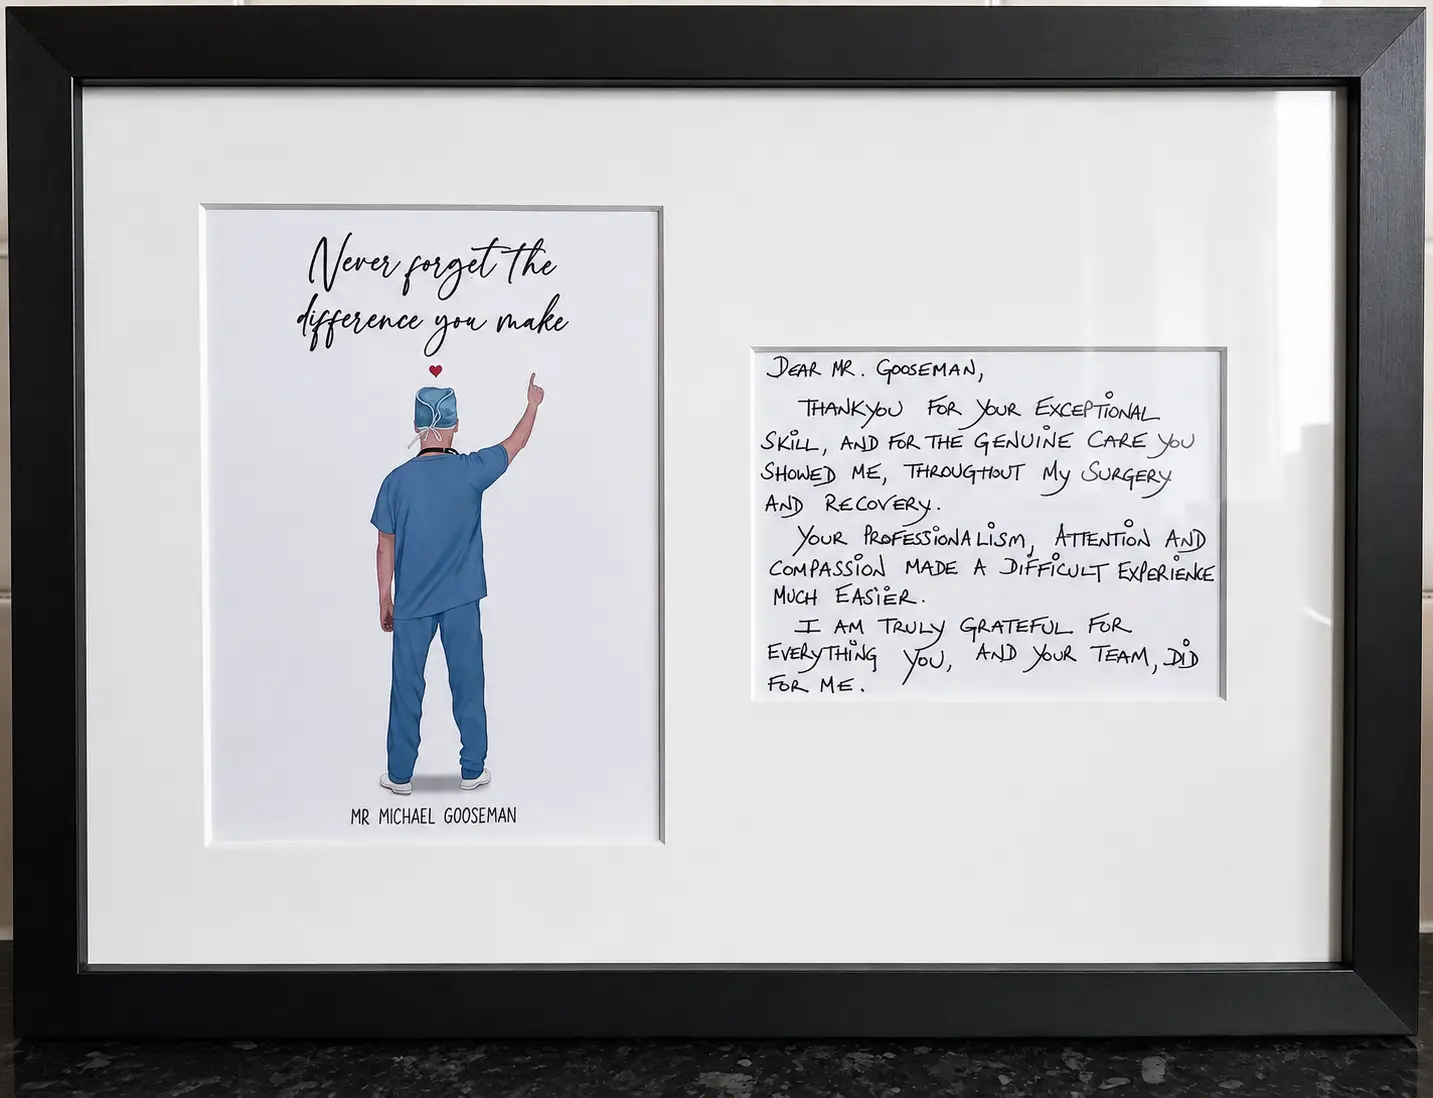 Never forget the
difference you make
MR MICHAEL GOOSEMAN
DEAR MR. GOOSEMAN,
THANKYOU FOR YOUR EXCEPTIONAL
SKILL, AND FOR THE GENUINE CARE YOU
SHOWED ME, THROUGHOUT MY SURGERY
AND RECOVERY.
YOUR PROFESSIONALISM, ATTENTION AND
COMPASSION MADE A DIFFICULT EXPERIENCE
MUCH EASIER.
I AM TRULY GRATEFUL FOR
EVERYTHING YOU, AND YOUR TEAM, DID
FOR ME.